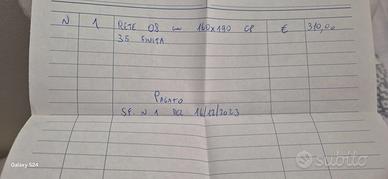 N 1 RETE 08 cm 160x190 CP € 310,00
35 FINITA
PAGATO
SF. N 1 DEL 16/12/2023
Galaxy S24
subito